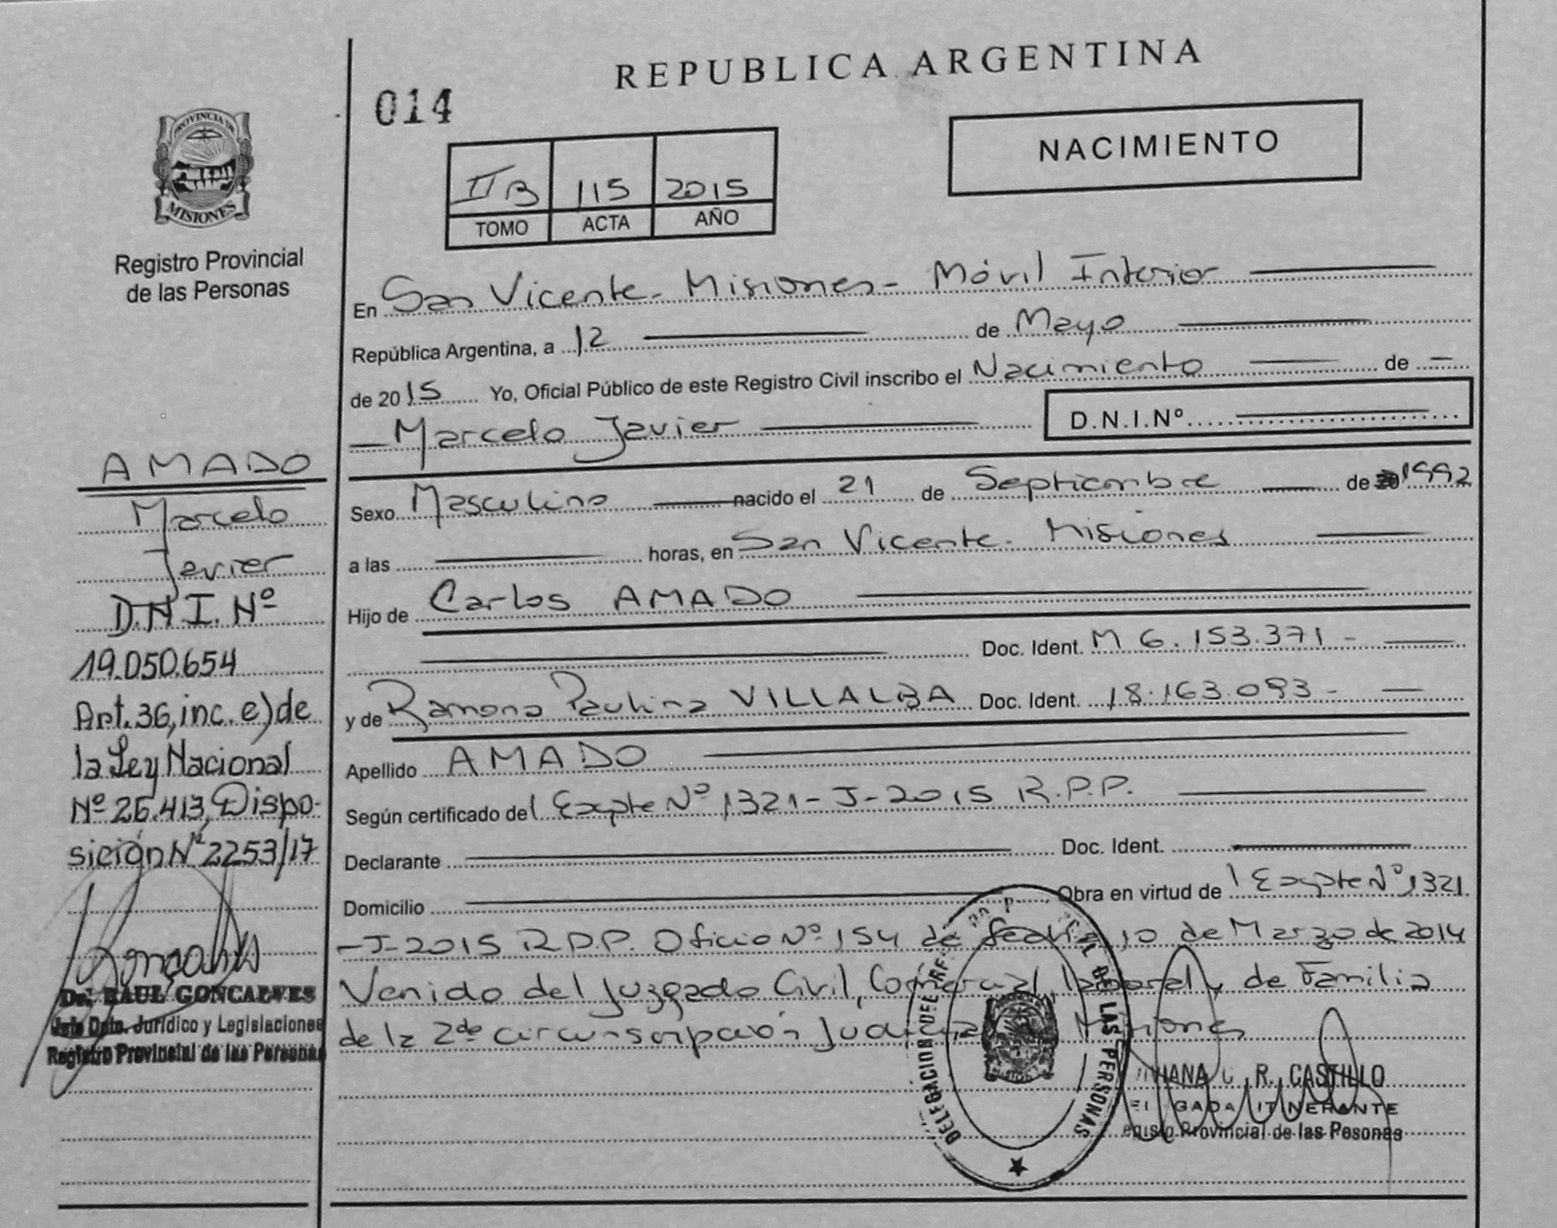 REPUBLICA ARGENTINA
014
NACIMIENTO
II B 115 2015
TOMO ACTA AÑO
PROVINCIA DE
MISIONES
Registro Provincial
de las Personas
En San Vicente - Misiones - Móvil Interior
República Argentina, a 12 de Mayo
de 2015 Yo, Oficial Público de este Registro Civil inscribo el Nacimiento de
Marcelo Javier D.N.I.Nº
Sexo Masculino nacido el 21 de Septiembre de 1992
a las horas, en San Vicente - Misiones
Hijo de Carlos AMADO
Doc. Ident. M 6.153.371 -
y de Ramona Paulina VILLALBA Doc. Ident. 18.163.093 -
Apellido AMADO
Según certificado del Expte Nº 1321-J-2015 R.P.P.
Declarante Doc. Ident.
Domicilio Obra en virtud de l Expte Nº 1321
-J-2015 R.P.P. Oficio Nº 154 de fecha 10 de Marzo de 2014
Venido del Juzgado Civil, Comercial, laboral y de Familia
de la 2da circunscripción Judicial Misiones
AMADO
Marcelo
Javier
D.N.I. Nº
19.050.654
Art. 36, inc. e) de
la Ley Nacional
Nº 26.413, Dispo-
sición Nº 2253/17
Dr. RAUL GONCALVES
Jefe Dpto. Jurídico y Legislaciones
Registro Provincial de las Personas
DELEGACION DEL DE LAS PERSONAS
R. CASTILLO
ITINERANTE
Provincial de las Pesonas